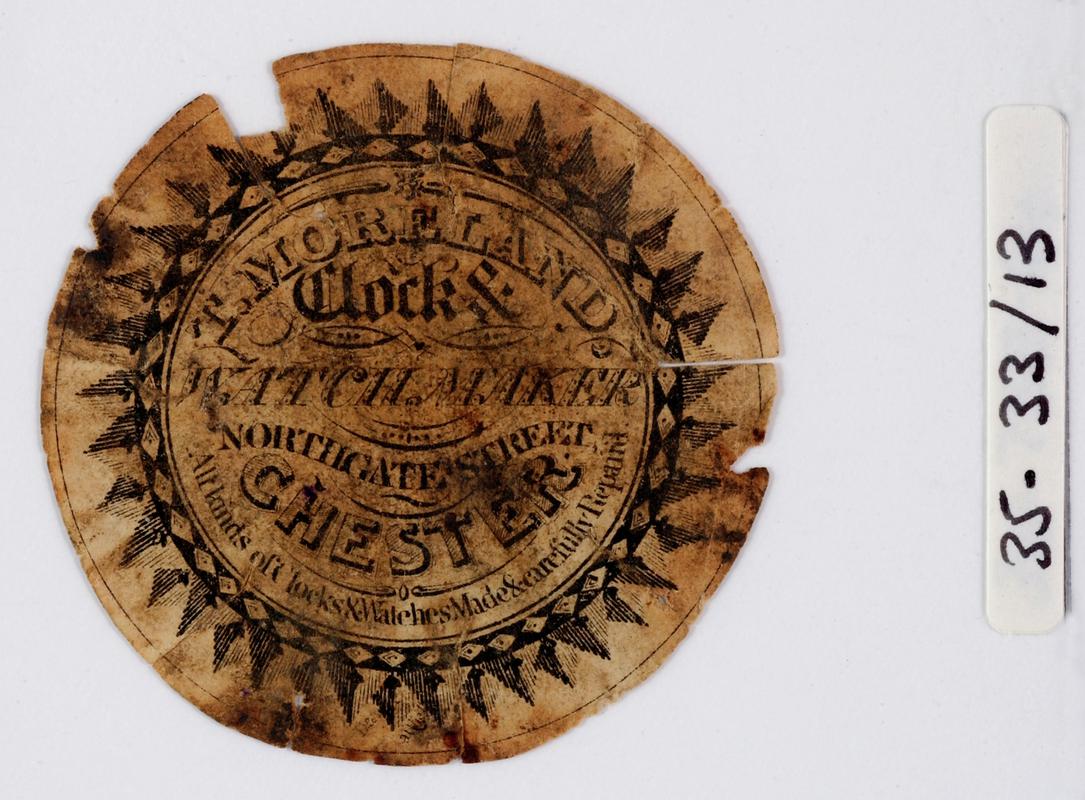 T. MORELAND.
Clock &
WATCH MAKER
NORTHGATE STREET,
CHESTER.
All kinds of Clocks & Watches Made & carefully Repair'd
35-33/13